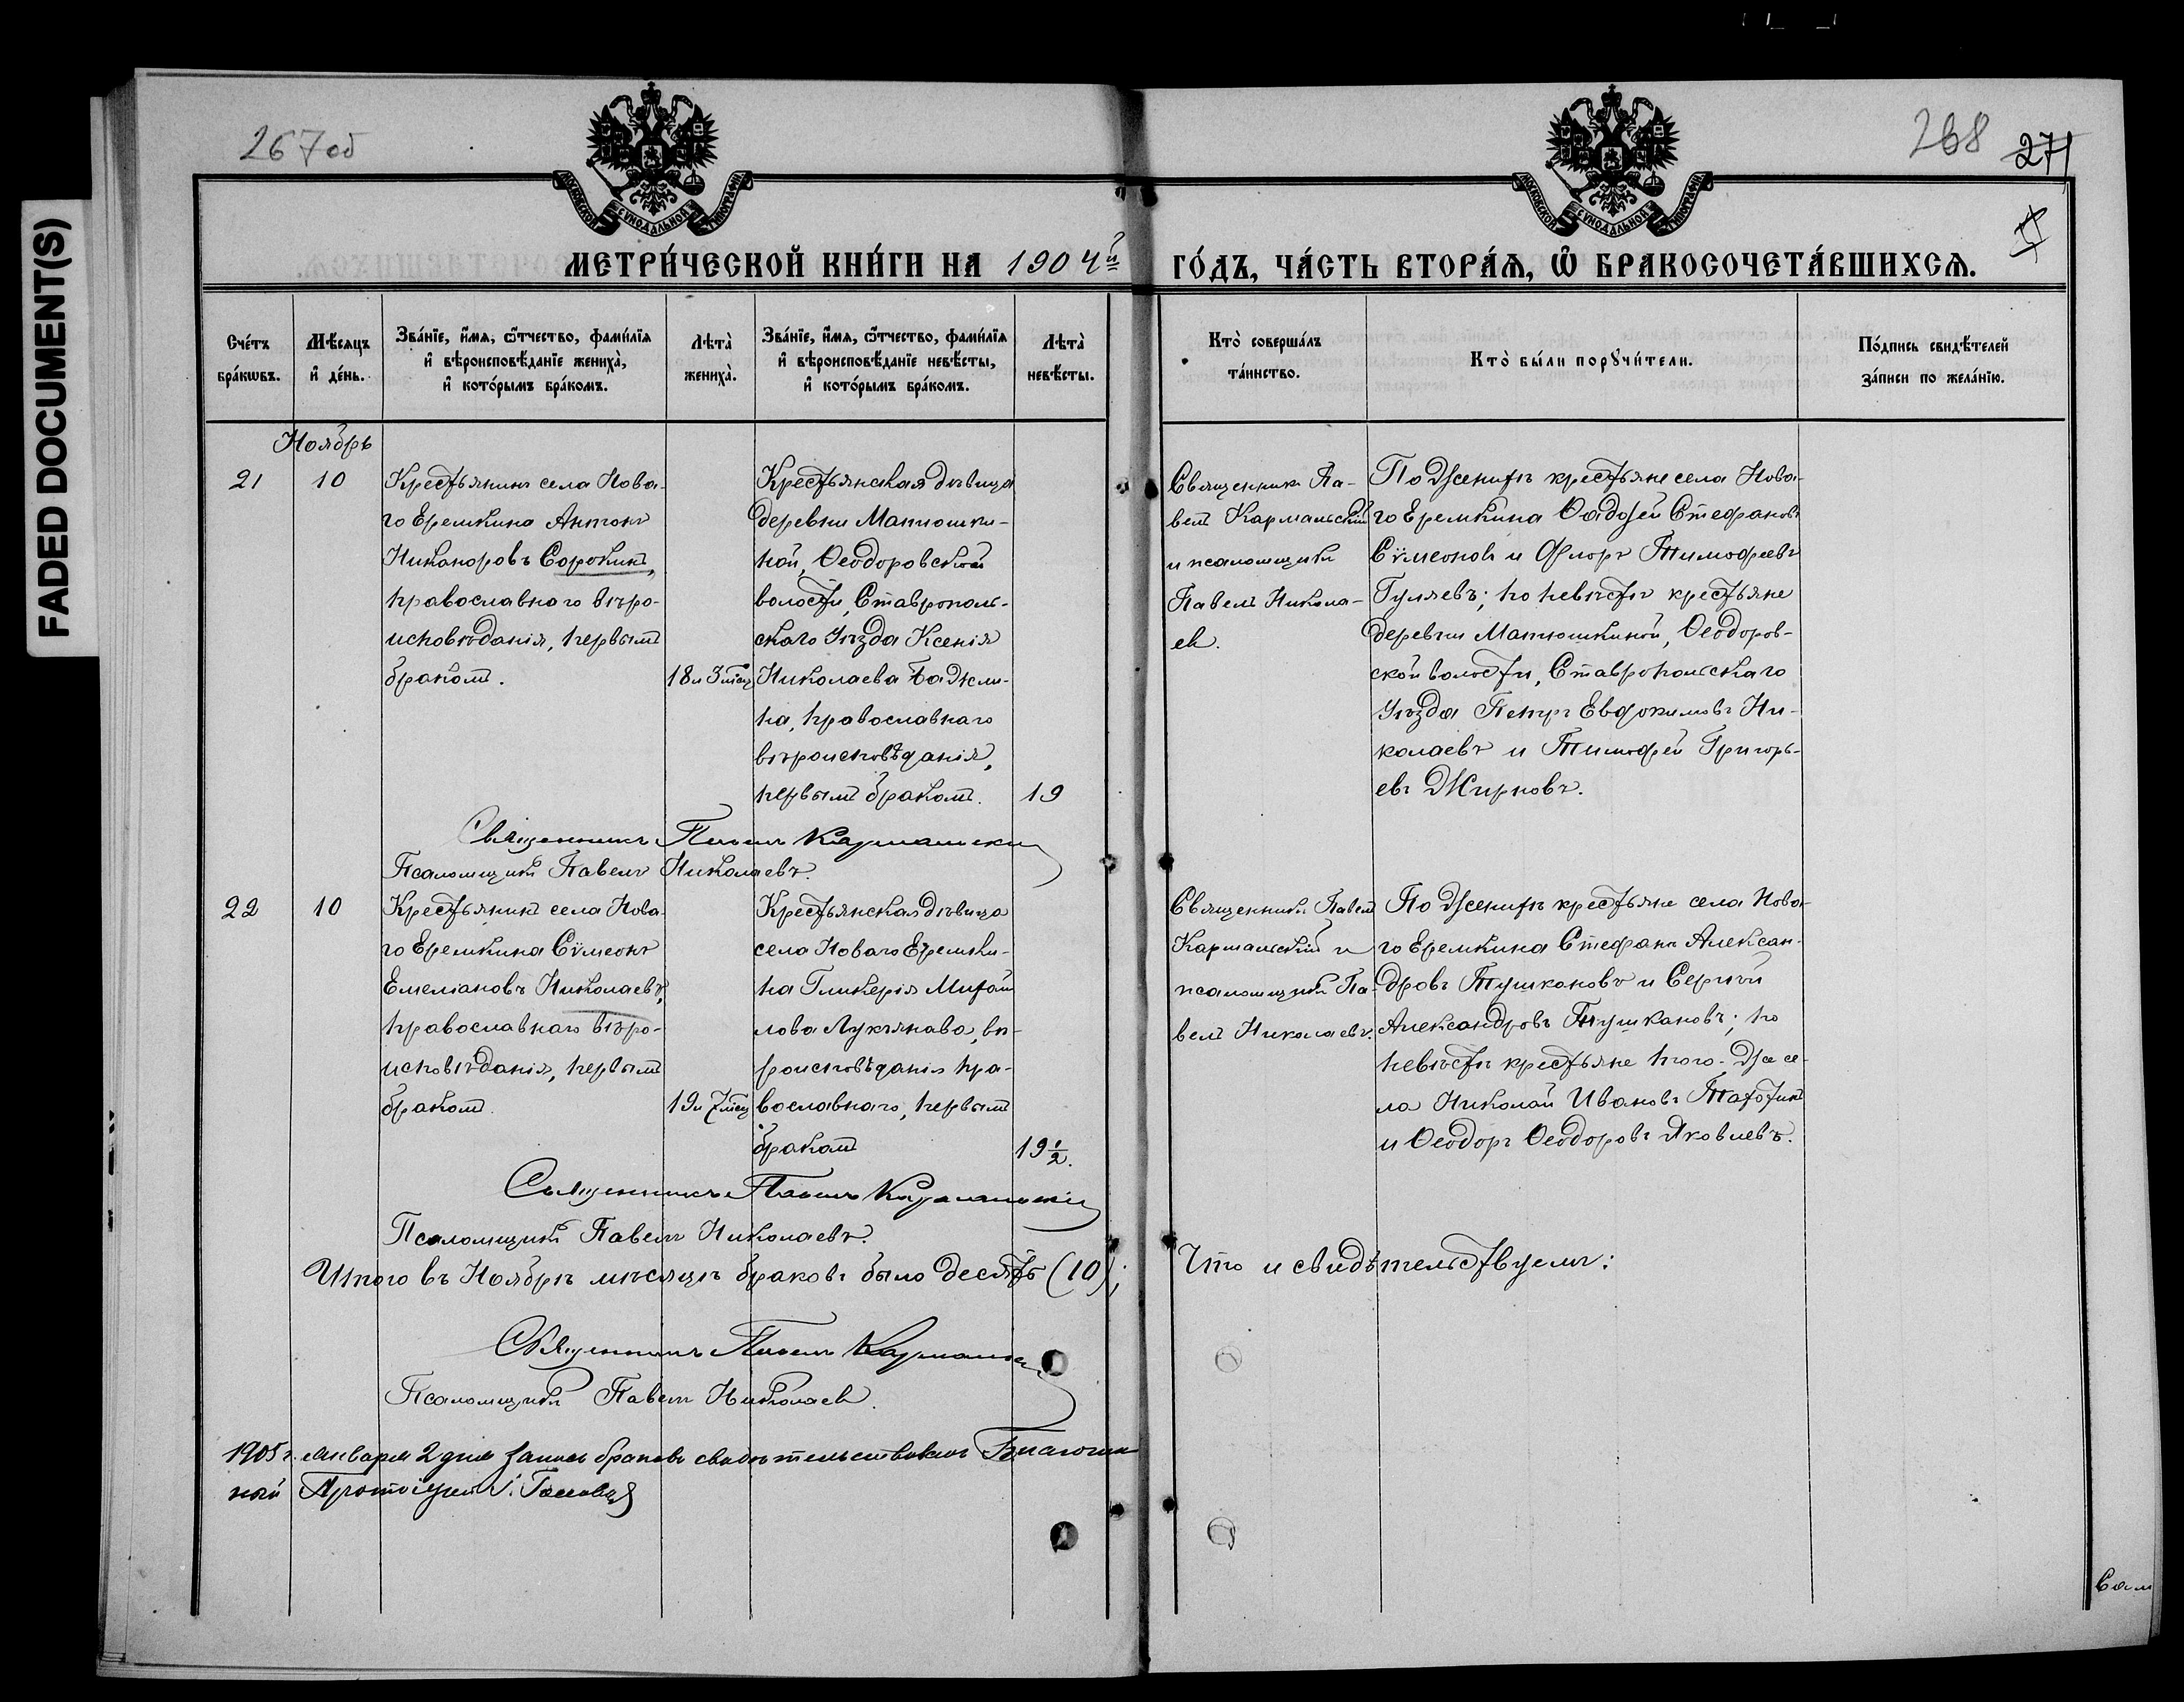 FADED DOCUMENT(S)
267об
268
271
МОСКОВСКОЙ СѴНОДАЛЬНОЙ ТИПОГРАФІИ
МОСКОВСКОЙ СѴНОДАЛЬНОЙ ТИПОГРАФІИ
МЕТРИ́ЧЕСКОЙ КНИ́ГИ НА 1904й
ГО́ДЪ, ЧА́СТЬ ВТОРА́Ѧ, Ѡ҆ БРАКОСОЧЕТА́ВШИХСѦ.
Сче́тъ
бра́кѡвъ.
Мѣ́сѧцъ
и҆ де́нь.
Зва́нїе, и҆́мѧ, ѻ҆́тчество, фами́лїѧ
и҆ вѣроисповѣ́данїе жениха̀,
и҆ кото́рымъ бра́комъ.
Лѣта̀
жениха̀.
Зва́нїе, и҆́мѧ, ѻ҆́тчество, фами́лїѧ
и҆ вѣроисповѣ́данїе невѣ́сты,
и҆ кото́рымъ бра́комъ.
Лѣта̀
невѣ́сты.
Кто̀ соверша́лъ
та́инство.
Кто̀ бы́ли порꙋчи́тели.
По́дпись свидѣ́телей
за́писи по жела́нїю.
Ноябрь
21
10
Крестьянинъ села Нова-
го Еремкина Антонъ
Никаноровъ Сорокинъ,
православнаго вѣро-
исповѣданія, первымъ
бракомъ.
18 и 3 мѣсяц
Крестьянская дѣвица
деревни Матюшки-
ной, Ѳеодоровской
волости, Ставрополь-
скаго Уѣзда Ксенія
Николаева Баджи-
на, православнаго
вѣроисповѣданія,
первымъ бракомъ.
19
Священникъ Па-
велъ Кармальскій
и псаломщикъ
Павелъ Никола-
евъ.
По женихѣ крестьяне села Нова-
го Еремкина Ѳадѳей Стефановъ
Сѵмеоновъ и Флоръ Тимофеевъ
Гуляевъ; по невѣстѣ крестьяне
деревни Матюшкиной, Ѳеодоров-
ской волости, Ставропольскаго
Уѣзда Петръ Евдокимовъ Ни-
колаевъ и Тимофей Григорь-
евъ Жирновъ.
Священникъ Павелъ Кармальскій
Псаломщикъ Павелъ Николаевъ.
22
10
Крестьянинъ села Нова-
го Еремкина Сѵмеонъ
Емеліановъ Николаевъ,
православнаго вѣро-
исповѣданія, первымъ
бракомъ.
19 и 7 мѣсяц
Крестьянская дѣвица
села Новаго Еремки-
на Гликерія Михаи
лова Лукъянова, вѣ-
роисповѣданія пра-
вославнаго, первымъ
бракомъ
19 1/2.
Священникъ Павелъ
Кармальскій и
псаломщикъ Па-
велъ Николаевъ.
По женихѣ крестьяне села Нова-
го Еремкина Стефанъ Алексан-
дровъ Тушкановъ и Сергѣй
Александровъ Тушкановъ; по
невѣстѣ крестьяне того-же се-
ла Николай Ивановъ
и Ѳеодоръ Ѳеодоровъ Яковлевъ.
Священникъ Павелъ Кармальскій
Псаломщикъ Павелъ Николаевъ.
Итого въ Ноябрѣ мѣсяцѣ браковъ было десять (10);
Что и свидѣтельствуемъ:
Священникъ Павелъ Кармальскій
Псаломщикъ Павелъ Николаевъ.
1905 г. января 2 дня запись браковъ свидѣтельствовалъ Благочин
ный Протоіерей І.